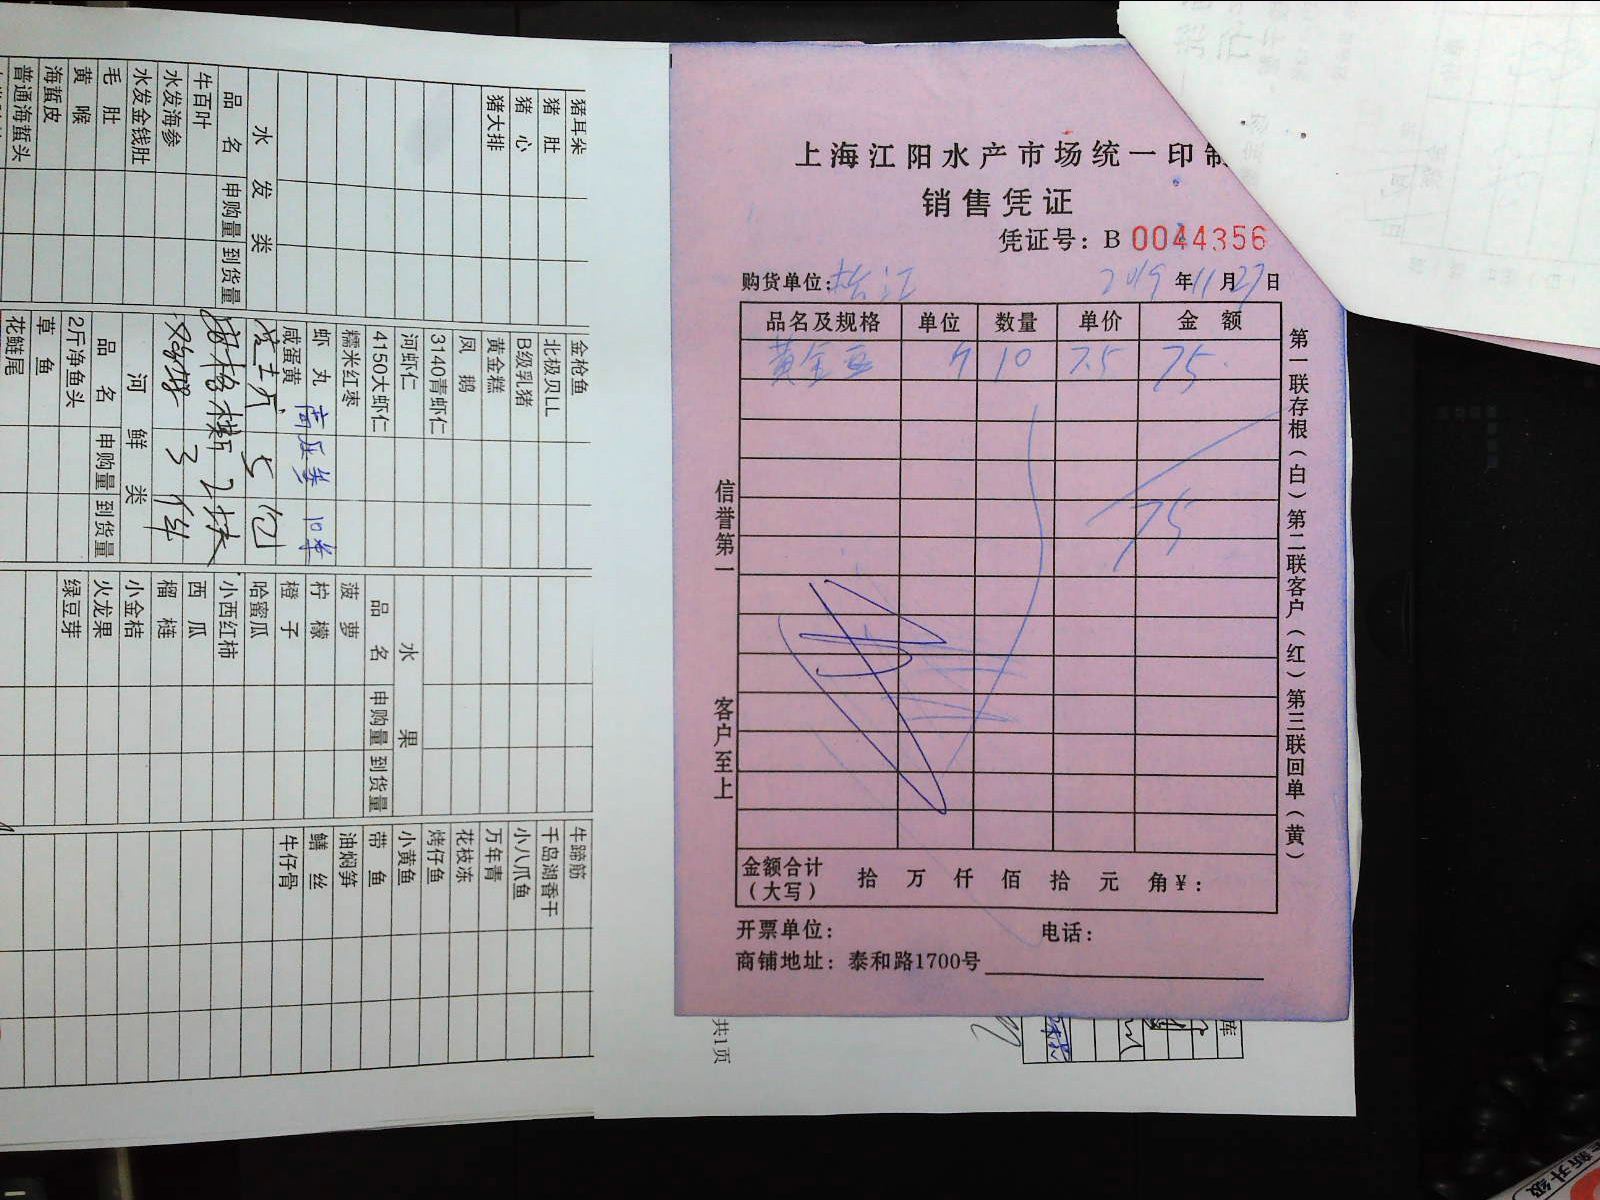 上海江阳水产市场统一印制
销售凭证
凭证号：B 0044356
购货单位：松江 2019年11月27日
品名及规格 单位 数量 单价 金额
黄金豆 10 7.5 75.
75
信誉第一 客户至上
第一联存根（白）第二联客户（红）第三联回单（黄）
金额合计（大写） 拾 万 仟 佰 拾 元 角 ¥：
开票单位： 电话：
商铺地址：泰和路1700号
共1页
库
猪耳朵
猪肚
猪心
猪大排
水发类
品名 申购量 到货量
牛百叶
水发海参
水发金钱肚
毛肚
黄喉
海蜇皮
普通海蜇头
金枪鱼
北极贝LL
B级乳猪
黄金糕
凤鹅
3140青虾仁
河虾仁
4150大虾仁
糯米红枣
虾丸
咸蛋黄
5包
2块
3件
河鲜类
品名 申购量 到货量
2斤净鱼头
草鱼
花鲢尾
水果
品名 申购量 到货量
菠萝
柠檬
橙子
哈蜜瓜
小西红柿
西瓜
榴梿
小金桔
火龙果
绿豆芽
牛蹄筋
千岛湖香干
小八爪鱼
万年青
花枝冻
烤仔鱼
小黄鱼
带鱼
油焖笋
鳝丝
牛仔骨
新升级